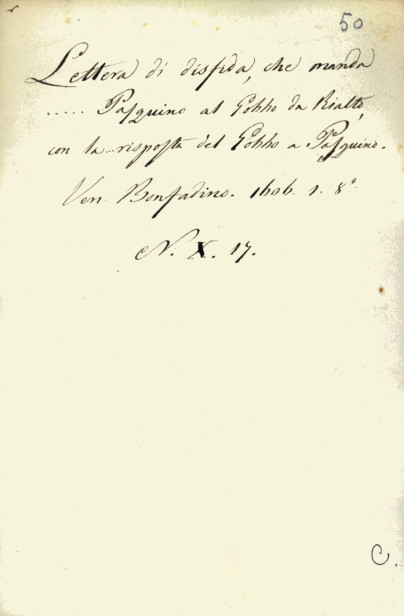 50
Lettera di disfida, che manda
..... Pasquino al Gobbo da Rialto,
con la risposta del Gobbo a Pasquino.
Ven. Bonfadino. 1606. 1. 8°.
N. X. 17.
C.